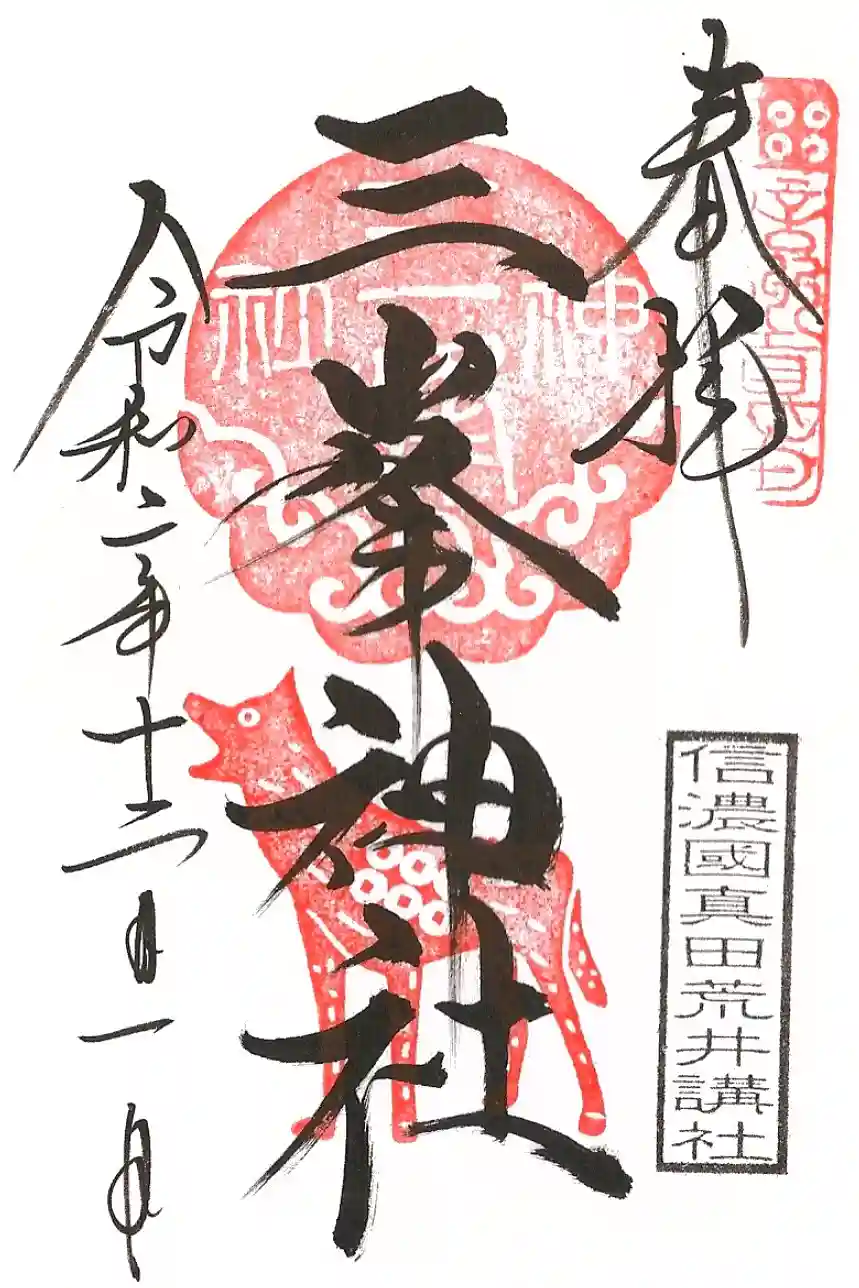 奉拝
信濃國真田荒井講社
三峯神社
令和二年十二月一日